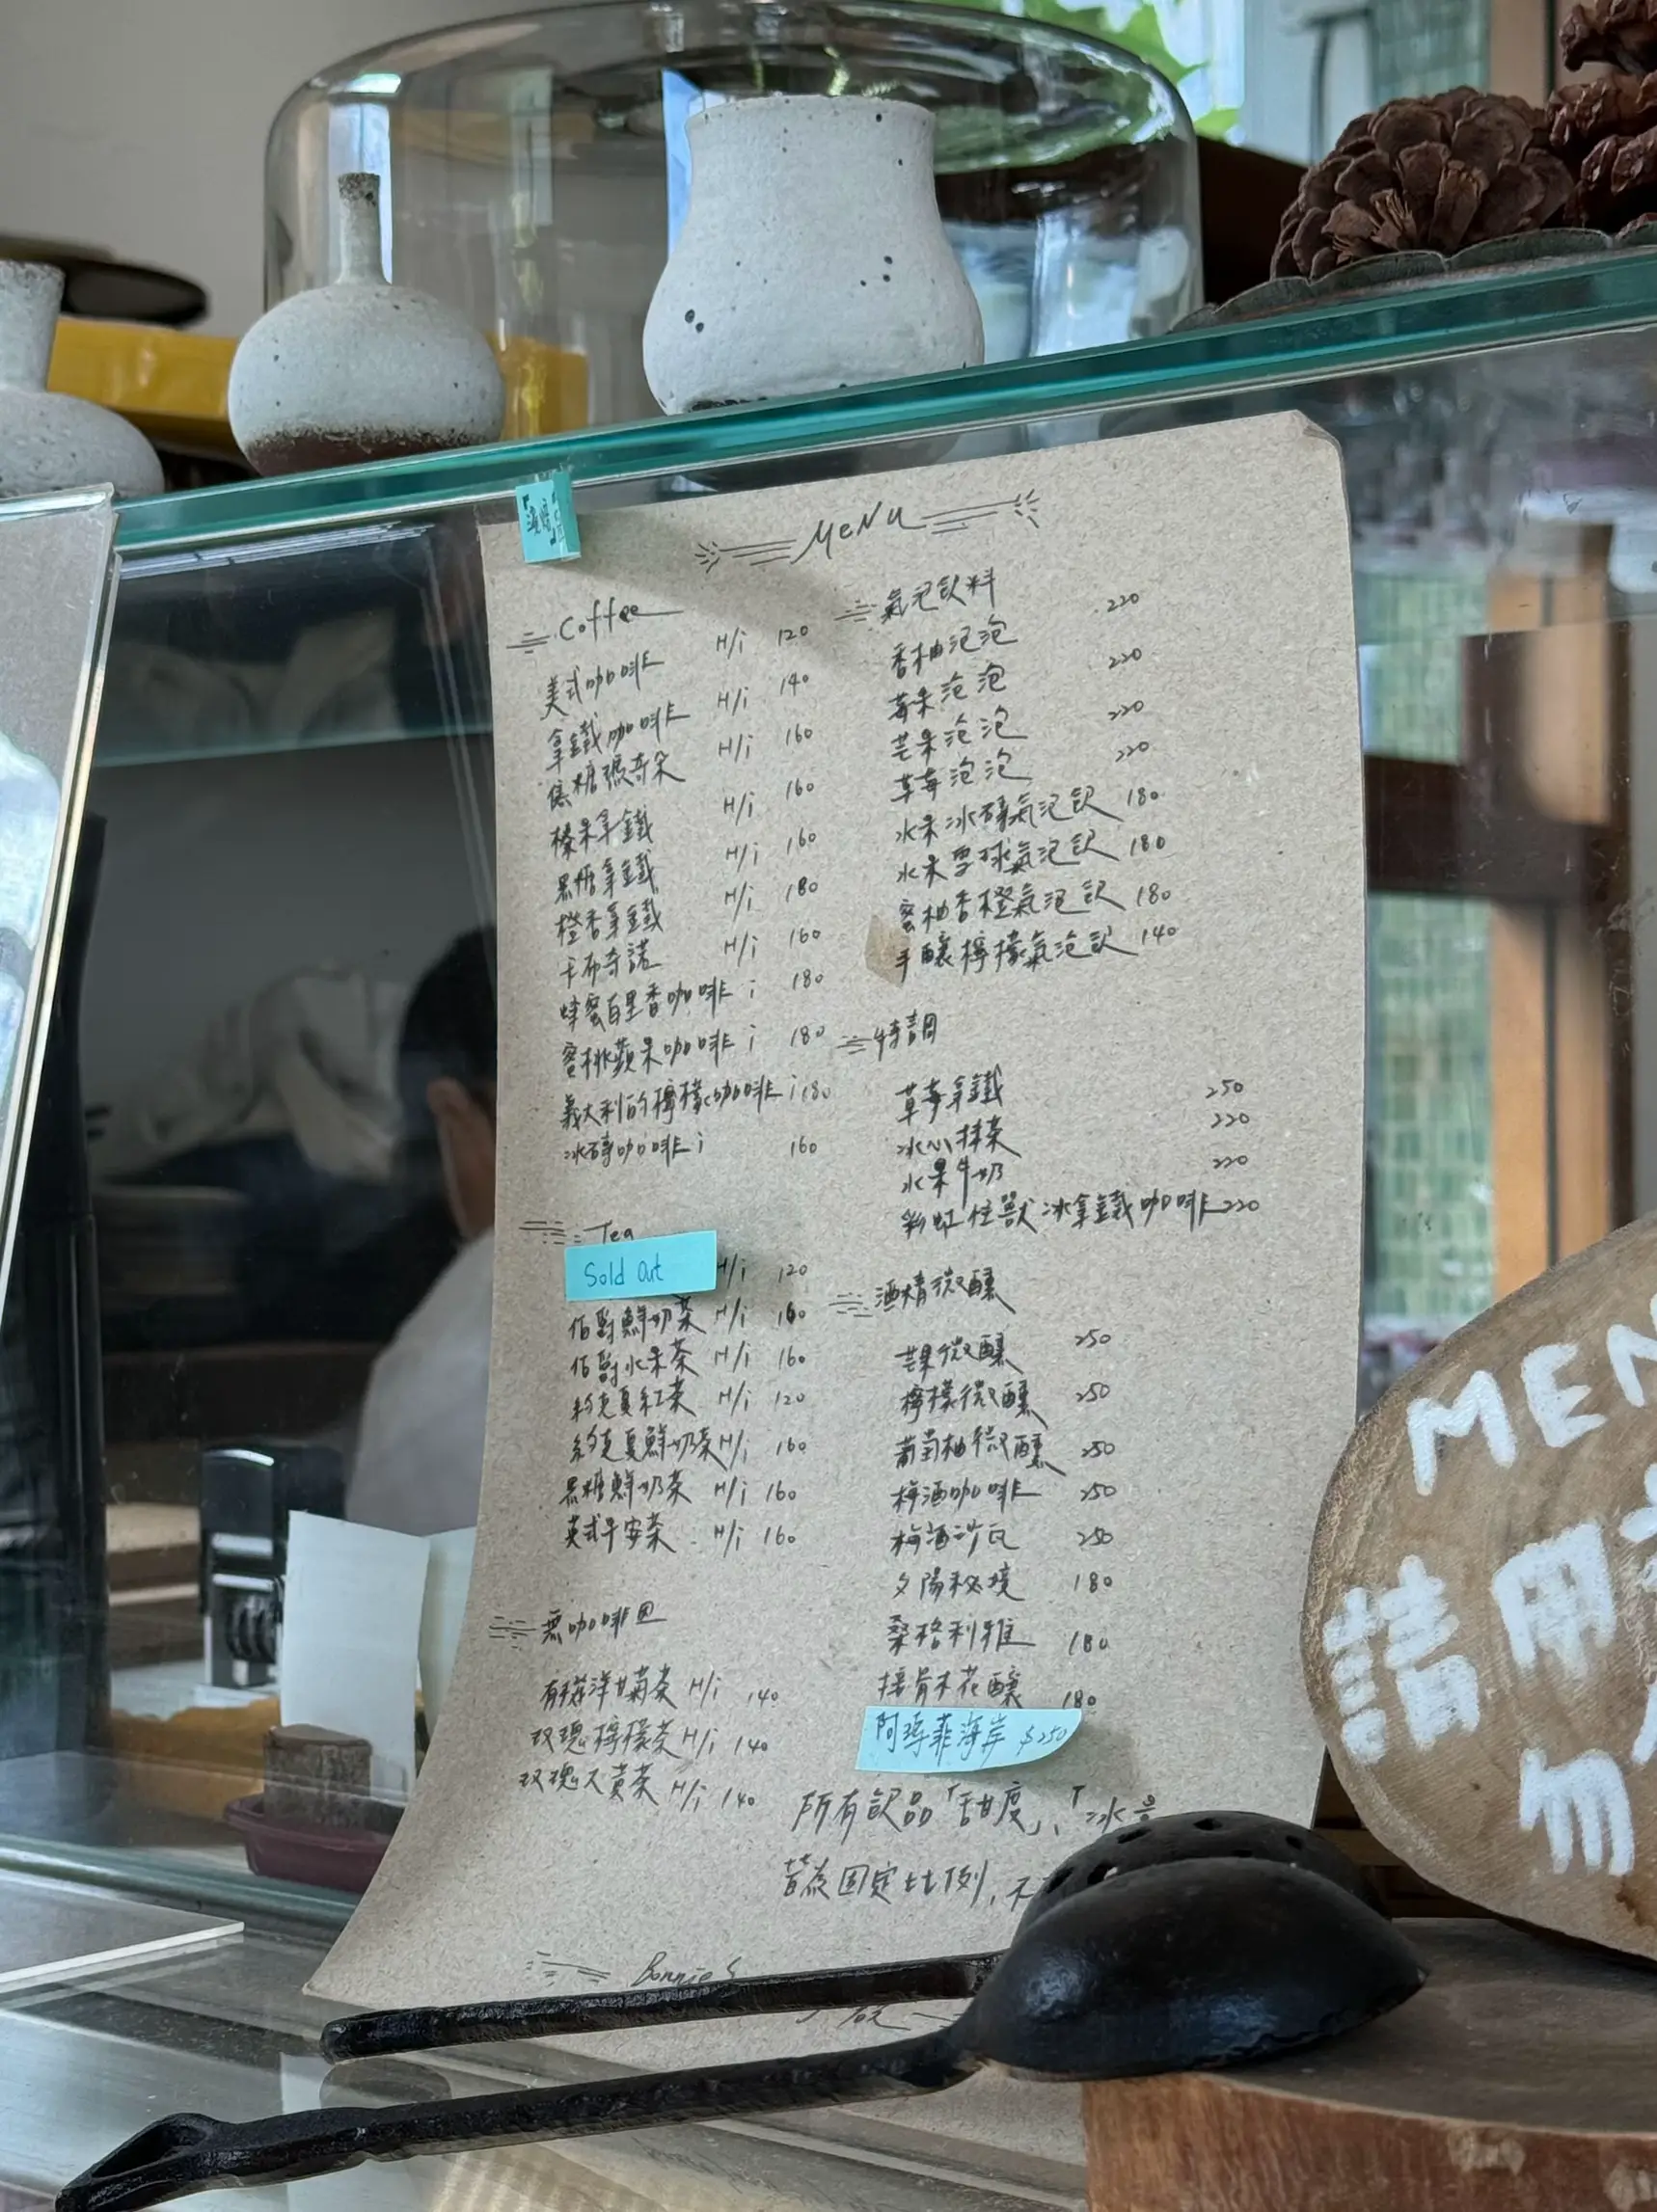 MeNu
Coffee
美式咖啡 H/i 120
拿鐵咖啡 H/i 140
焦糖瑪奇朵 H/i 160
榛果拿鐵 H/i 160
黑糖拿鐵 H/i 160
橙香拿鐵 H/i 180
卡布奇諾 H/i 160
蜂蜜百里香咖啡 i 180
蜜桃蘋果咖啡 i 180
義大利的檸檬咖啡 i 180
冰磚咖啡 i 160
Tea
Sold Out H/i 120
伯爵鮮奶茶 H/i 160
伯爵水果茶 H/i 160
約克夏紅茶 H/i 120
約克夏鮮奶茶 H/i 160
黑糖鮮奶茶 H/i 160
英式早安茶 H/i 160
無咖啡因
有機洋甘菊茶 H/i 140
玫瑰檸檬茶 H/i 140
玫瑰大黃茶 H/i 140
氣泡飲料
香柚泡泡 220
莓果泡泡 220
芒果泡泡 220
草莓泡泡 220
水果冰磚氣泡飲 180
水果雪球氣泡飲 180
蜜柚香橙氣泡飲 180
手釀檸檬氣泡飲 140
特調
草莓拿鐵 250
冰心抹茶 220
水果牛奶 220
彩虹怪獸冰拿鐵咖啡 220
酒精微醺
芒果微醺 250
檸檬微醺 250
葡萄柚微醺 250
梅酒咖啡 250
梅酒沙瓦 250
夕陽秘境 180
桑格利雅 180
接骨木花釀 180
阿瑪菲海岸 $250
所有飲品「甜度」、「冰量
皆為固定比例,不
Bonnie S
MEN
請用
勿